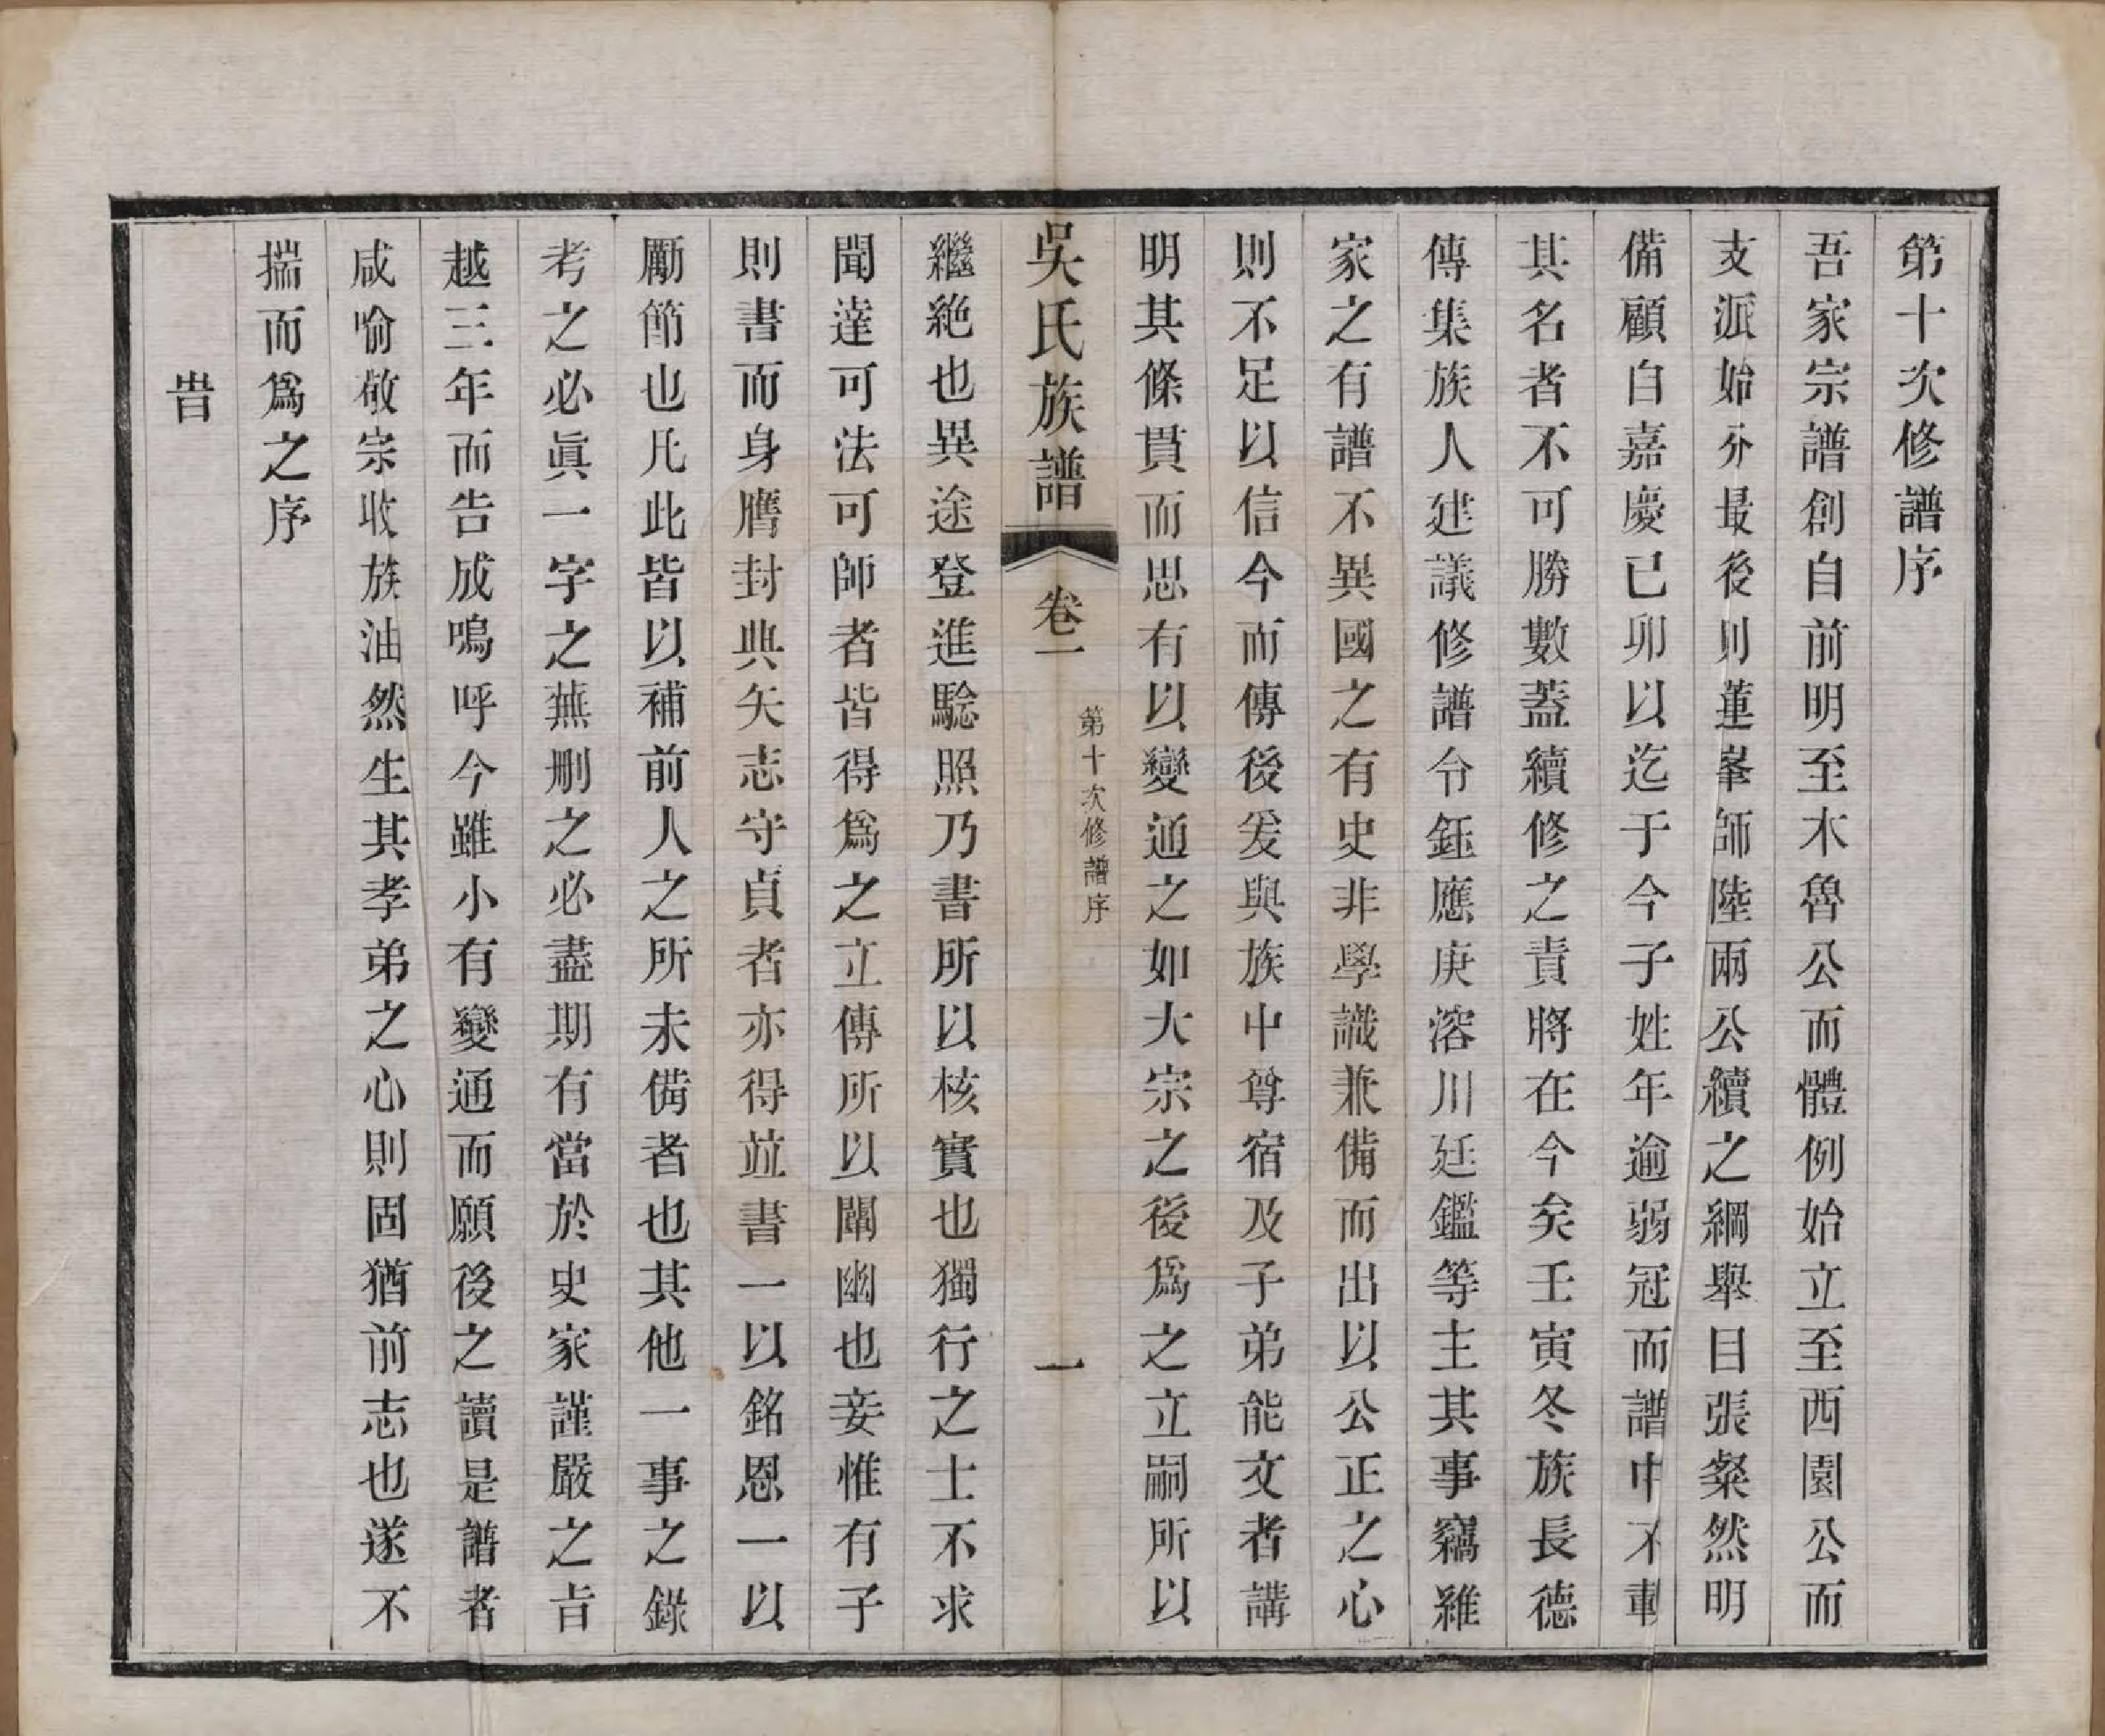 第十次修譜序
吾家宗譜創自前明至木魯公而體例始立至西園公而
支派始分最後則蓮峯師陸兩公續之綱舉目張粲然明
備顧自嘉慶已卯以迄于今子姓年逾弱冠而譜中不載
其名者不可勝數蓋續修之責將在今矣壬寅冬族長德
傳集族人建議修譜令鈺應庚溶川廷鑑等主其事竊維
家之有譜不異國之有史非學識兼備而出以公正之心
則不足以信今而傳後爰與族中尊宿及子弟能文者講
明其條貫而思有以變通之如大宗之後爲之立嗣所以
吳氏族譜 卷一 第十次修譜序 一
繼絶也異途登進驗照乃書所以核實也獨行之士不求
聞達可法可師者皆得爲之立傳所以闡幽也妾惟有子
則書而身膺封典矢志守貞者亦得竝書一以銘恩一以
勵節也凡此皆以補前人之所未備者也其他一事之錄
考之必眞一字之蕪删之必盡期有當於史家謹嚴之旨
越三年而告成嗚呼今雖小有變通而願後之讀是譜者
咸喻敬宗收族油然生其孝弟之心則固猶前志也遂不
揣而爲之序
旹